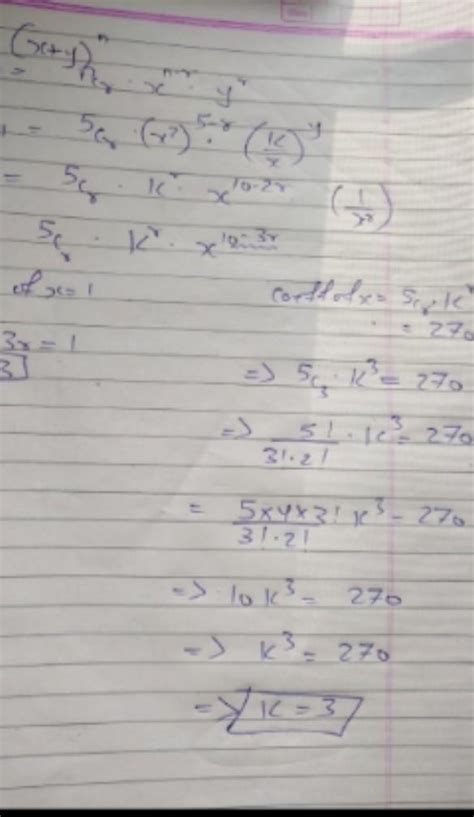 (x+y)^n
= ⁿCᵣ · x^(n-r) · y^r
= ⁵Cᵣ · (x²)^(5-r) · (k/x)^y
= ⁵Cᵣ · k^r · x^(10-2r) (1/x^r)
⁵Cᵣ · k^r · x^(10-3r)
of x = 1
coeff of x = ⁵Cᵣ · k^r
= 270
3r = 1
3
=> ⁵C₃ · k³ = 270
=> 5!/(3!·2!) · k³ = 270
= (5×4×3!)/(3!·2!) k³ = 270
=> 10k³ = 270
=> k³ = 270
=> k = 3